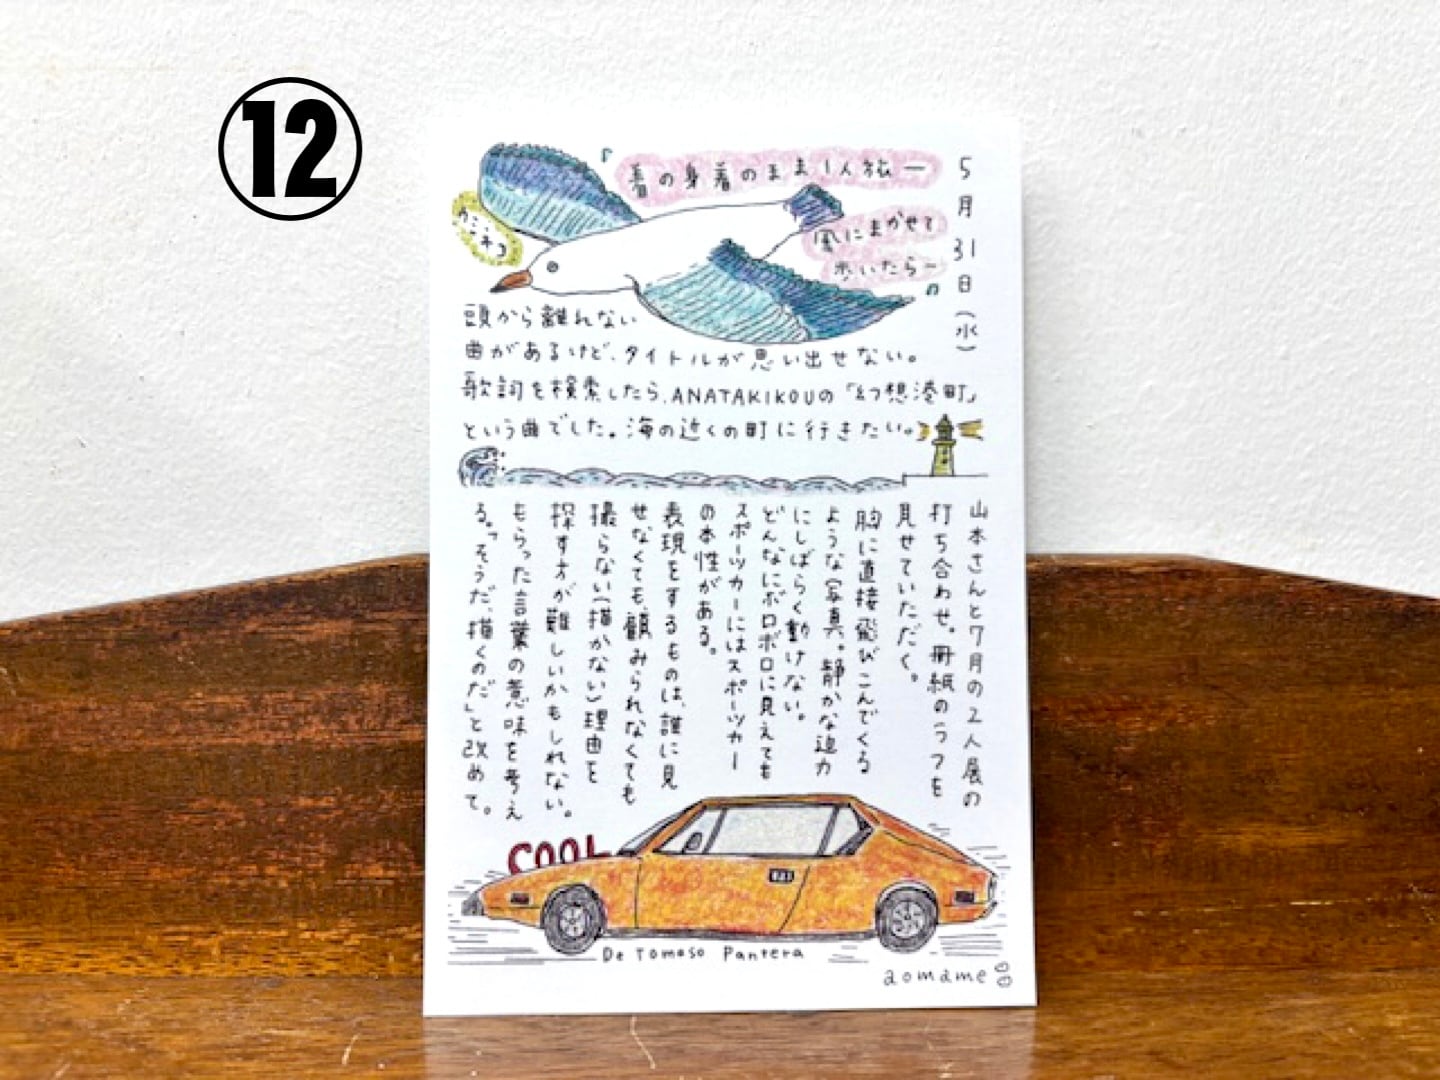 12
5月31日(水)
『着の身着のまま1人旅ー
風にまかせて
歩いたらー』
ウミネコ
頭から離れない
曲があるけど、タイトルが思い出せない。
歌詞を検索したら、ANATAKIKOUの「幻想港町」
という曲でした。海の近くの町に行きたい。
山本さんと7月の2人展の
打ち合わせ。冊紙のラフを
見せていただく。
胸に直接飛びこんでくる
ような写真。静かな迫力
にしばらく動けない。
どんなにボロボロに見えても
スポーツカーにはスポーツカー
の本性がある。
表現をするものは、誰に見
せなくても顧みられなくても
撮らない(描かない)理由を
探す方が難しいかもしれない。
もらった言葉の意味を考え
る。「そうだ、描くのだ」と改めて。
COOL
De Tomoso Pantera
aomame